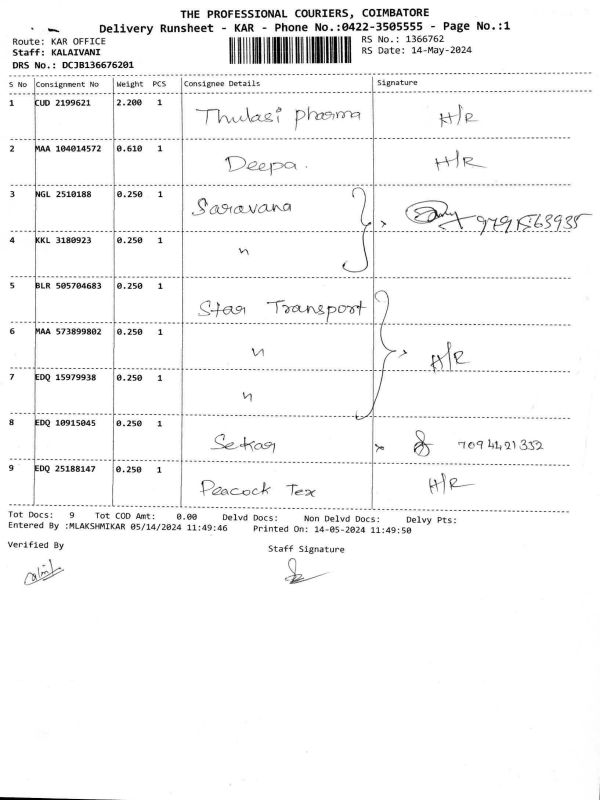 THE PROFESSIONAL COURIERS, COIMBATORE
Delivery Runsheet - KAR - Phone No.:0422-3505555 - Page No.:1
Route: KAR OFFICE
RS No.: 1366762
Staff: KALAIVANI
RS Date: 14-May-2024
DRS No.: DCJB136676201
S No Consignment No Weight PCS Consignee Details Signature
1 CUD 2199621 2.200 1 Thulasi pharma H/R
2 MAA 104014572 0.610 1 Deepa. H/R
3 NGL 2510188 0.250 1 Saravana 9791563935
4 KKL 3180923 0.250 1 〃
5 BLR 505704683 0.250 1 Star Transport
6 MAA 573899802 0.250 1 〃 H/R
7 EDQ 15979938 0.250 1 〃
8 EDQ 10915045 0.250 1 Sekar 7094421332
9 EDQ 25188147 0.250 1 Peacock Tex H/R
Tot Docs: 9 Tot COD Amt: 0.00 Delvd Docs: Non Delvd Docs: Delvy Pts:
Entered By :MLAKSHMIKAR 05/14/2024 11:49:46 Printed On: 14-05-2024 11:49:50
Verified By
Staff Signature